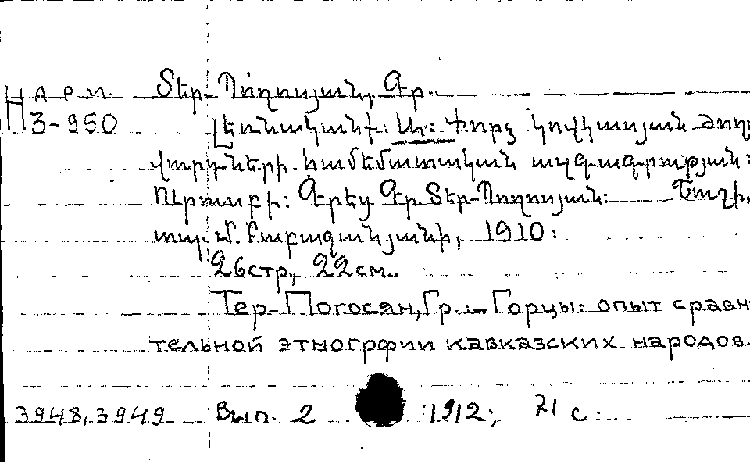 Տեր-Պողոսյան, Գր.
Н арм.
3-950
Լեռնականք: Առ: Փորձ կովկասյան ժող
վուրդների համեմատական ազգագրության:
Ուրսաբի: Գրեց Գր Տեր-Պողոսյան: Թաղի,
տպ. Մ. Շարաձեյանի, 1910:
26стр, 22см.
Тер-Погосян, Гр. Горцы: опыт сравн
тельной этногрфии кавказских народов.
3948, 3949 Вып. 2 1912; 71 с.